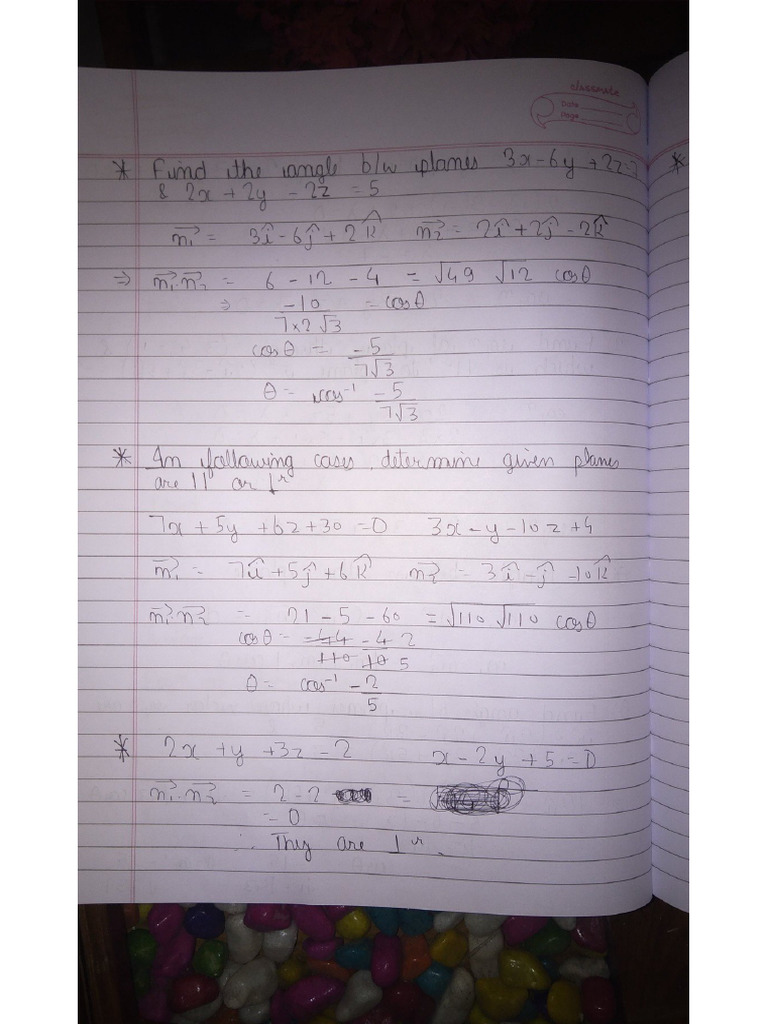 classmate
Date
Page
* Find the angle b/w planes 3x-6y+2z=7
& 2x+2y-2z=5
n₁⃗ = 3î-6ĵ+2k̂ n₂⃗ = 2î+2ĵ-2k̂
⇒ n₁⃗.n₂⃗ = 6-12-4 = √49 √12 cosθ
⇒ -10/7×2√3 = cosθ
cosθ = -5/7√3
θ = cos⁻¹ -5/7√3
* In following cases, determine given planes
are ||ˡ or ⊥ʳ
7x+5y+6z+30=0 3x-y-10z+4
n₁⃗ = 7î+5ĵ+6k̂ n₂⃗ = 3î-ĵ-10k̂
n₁⃗.n₂⃗ = 21-5-60 = √110 √110 cosθ
cosθ = -44/110 -4/10 2/5
θ = cos⁻¹ -2/5
* 2x+y+3z-2 x-2y+5=0
n₁⃗.n₂⃗ = 2-2 =
= 0
∴ They are ⊥ʳ.
*